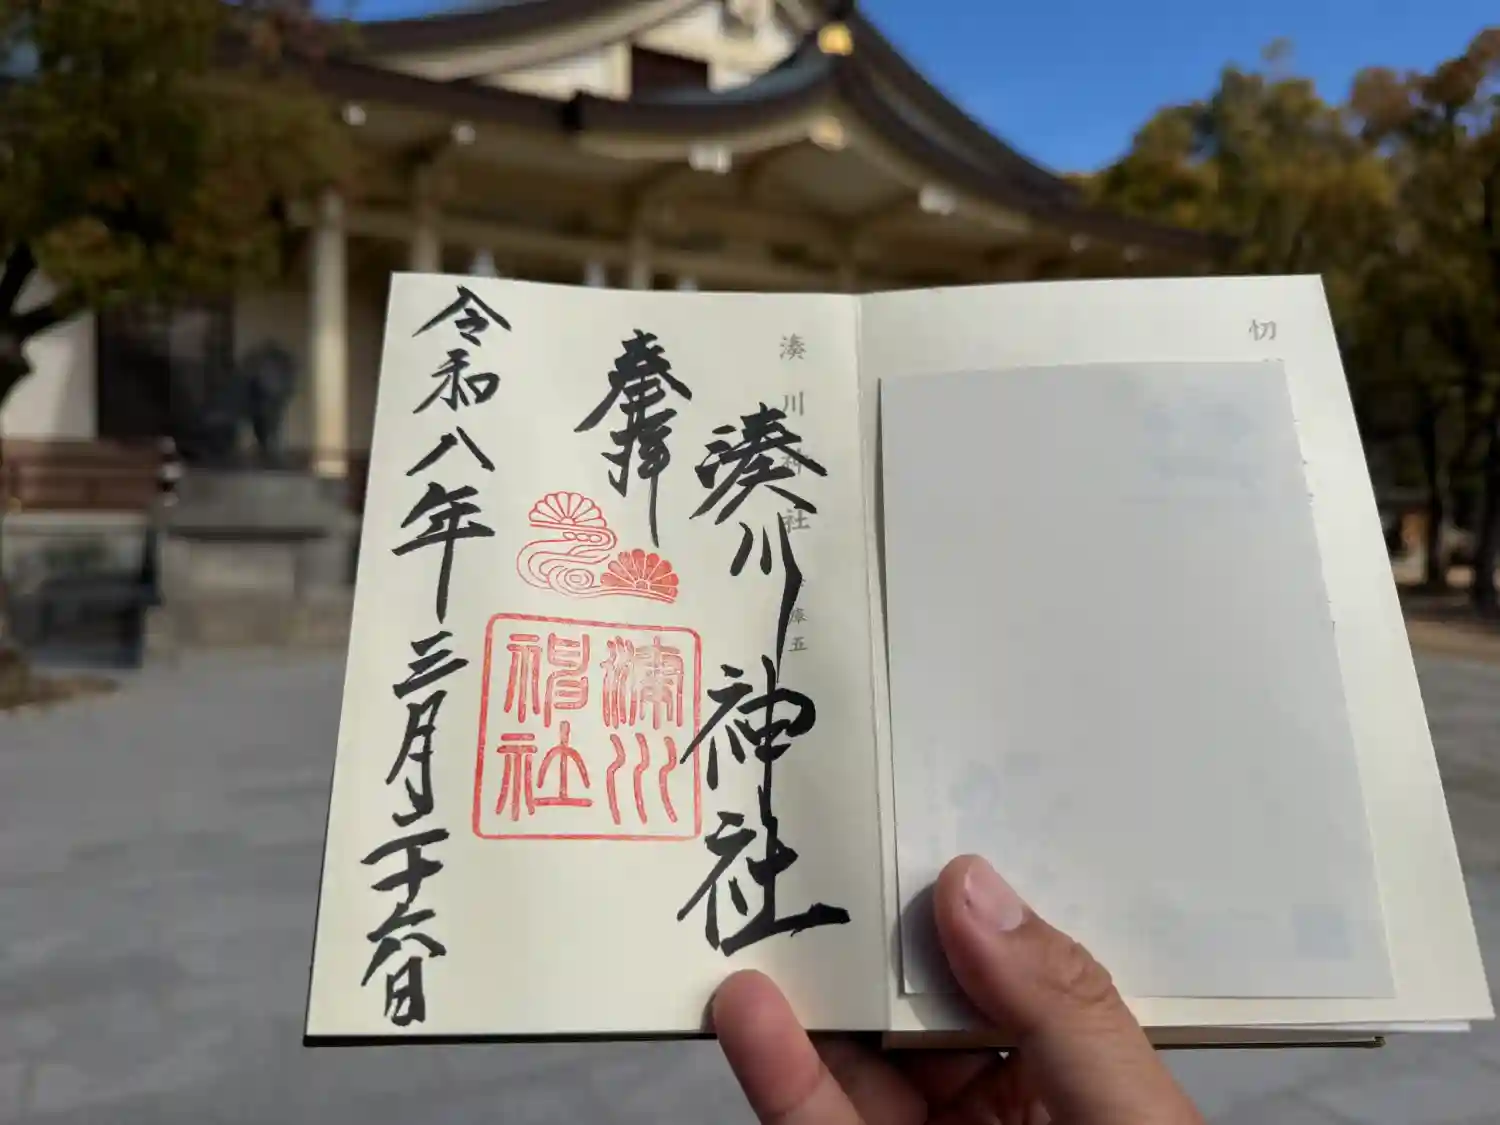 切
湊川神社
五
湊川神社
奉拝
湊川
神社
令和八年三月二十六日